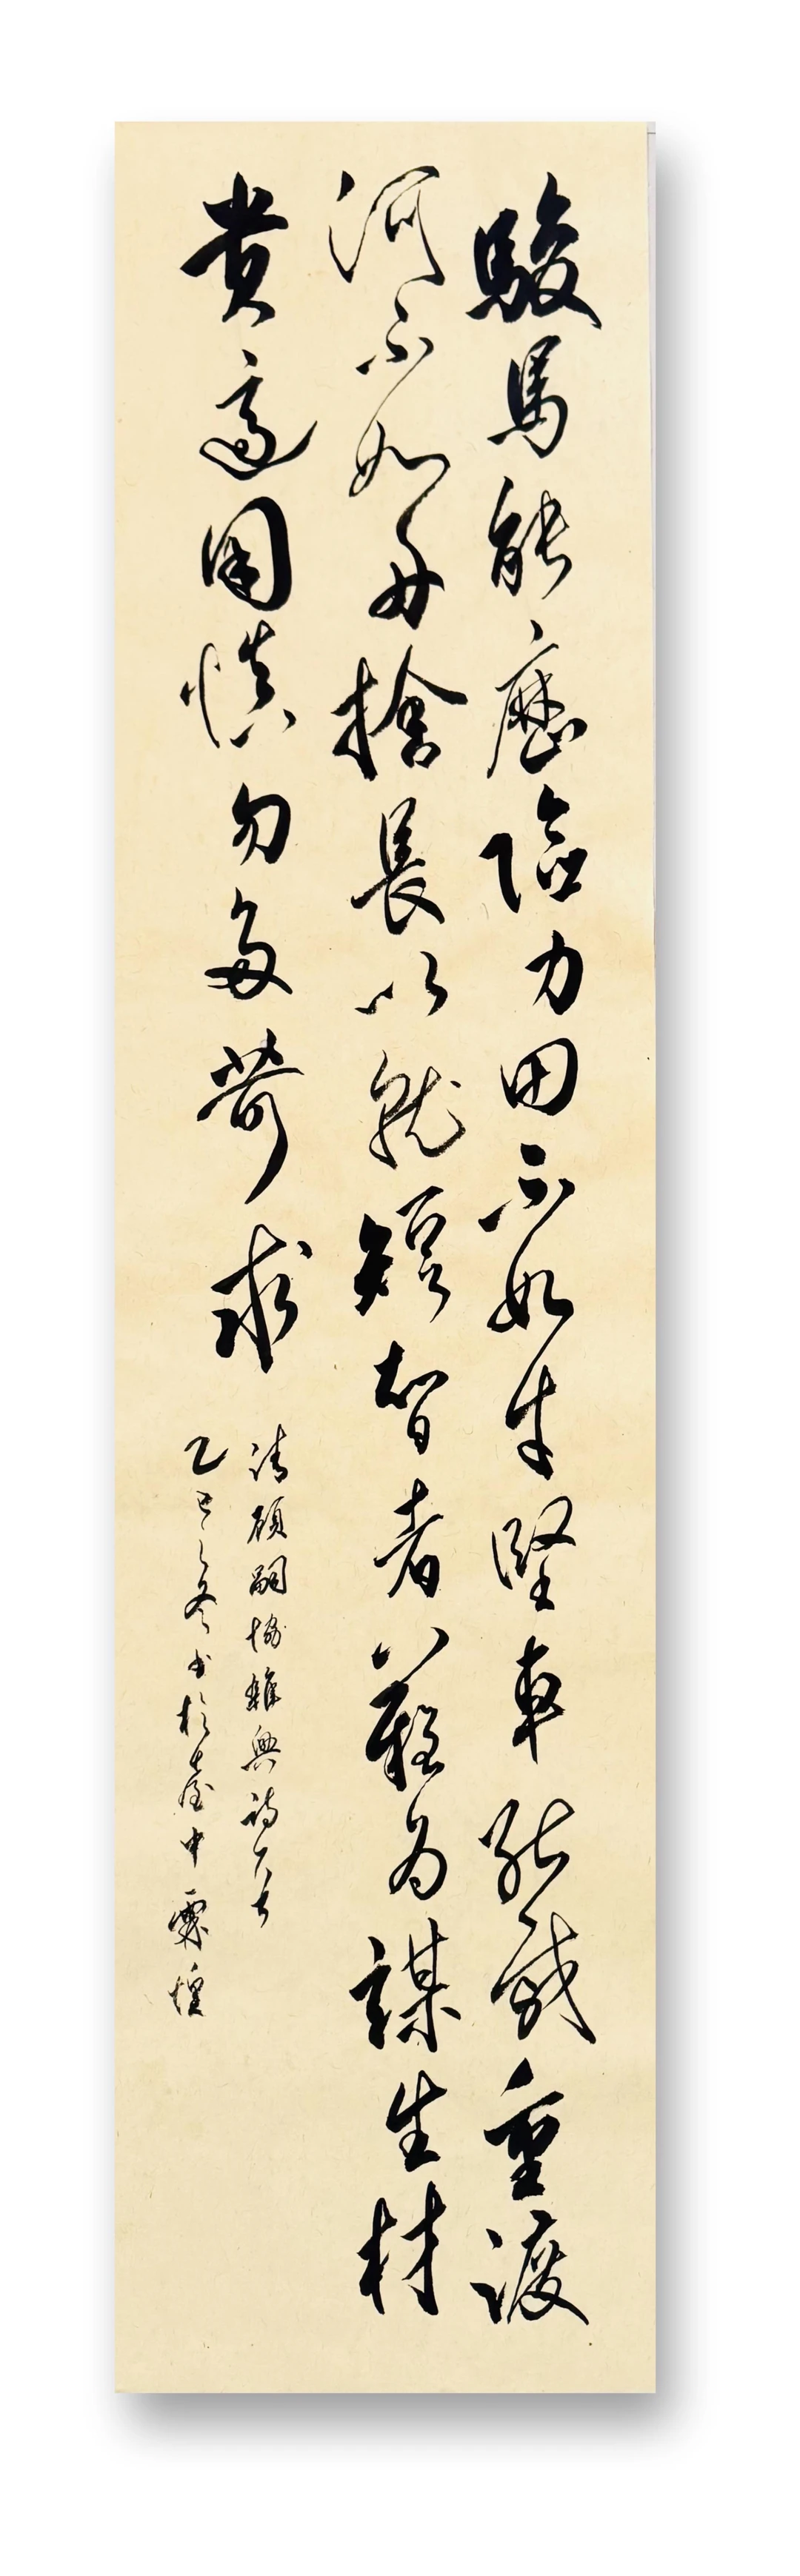 駿馬能歷險力田不如牛堅車能載重渡
河不如舟捨長以就短智者難為謀生材
貴適用慎勿多苛求
清顧嗣協雜興詩一首
乙巳之冬書於臺中